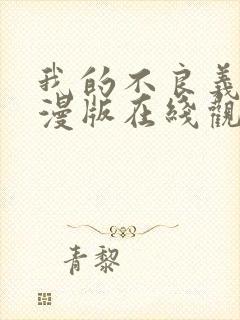 我的不良義
漫版在綫觀
青黎